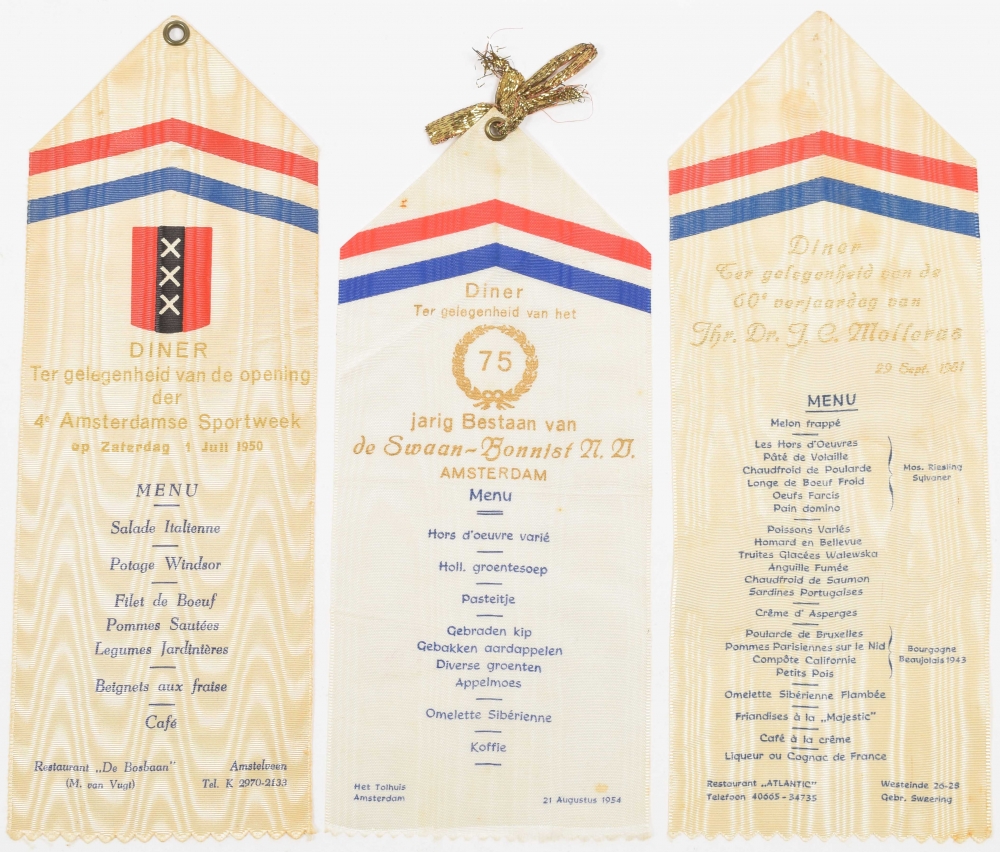 XXX
DINER
Ter gelegenheid van de opening
der
4e Amsterdamse Sportweek
op Zaterdag 1 Juli 1950
MENU
Salade Italienne
Potage Windsor
Filet de Boeuf
Pommes Sautées
Legumes Jardinières
Beignets aux fraise
Café
Restaurant „De Bosbaan" Amstelveen
(M. van Vugt) Tel. K 2970-2133
Diner
Ter gelegenheid van het
75
jarig Bestaan van
de Swaan-Bonnist N.V.
AMSTERDAM
Menu
Hors d'oeuvre varié
Holl. groentesoep
Pasteitje
Gebraden kip
Gebakken aardappelen
Diverse groenten
Appelmoes
Omelette Sibérienne
Koffie
Het Tolhuis
Amsterdam 21 Augustus 1954
Diner
Ter gelegenheid van de
60e verjaardag van
Jhr. Dr. J. C. Mollerus
29 Sept. 1951
MENU
Melon frappé
Les Hors d'Oeuvres
Pâté de Volaille
Chaudfroid de Poularde
Longe de Boeuf Froid
Oeufs Farcis
Pain domino
Mos. Riesling
Sylvaner
Poissons Variés
Homard en Bellevue
Truites Glacées Walewska
Anguille Fumée
Chaudfroid de Saumon
Sardines Portugaises
Crême d' Asperges
Poularde de Bruxelles
Pommes Parisiennes sur le Nid
Compôte Californie
Petits Pois
Bourgogne
Beaujolais 1943
Omelette Sibérienne Flambée
Friandises à la „Majestic"
Café à la crême
Liqueur ou Cognac de France
Restaurant „ATLANTIC" Westeinde 26-28
Telefoon 40665-34735 Gebr. Sweering